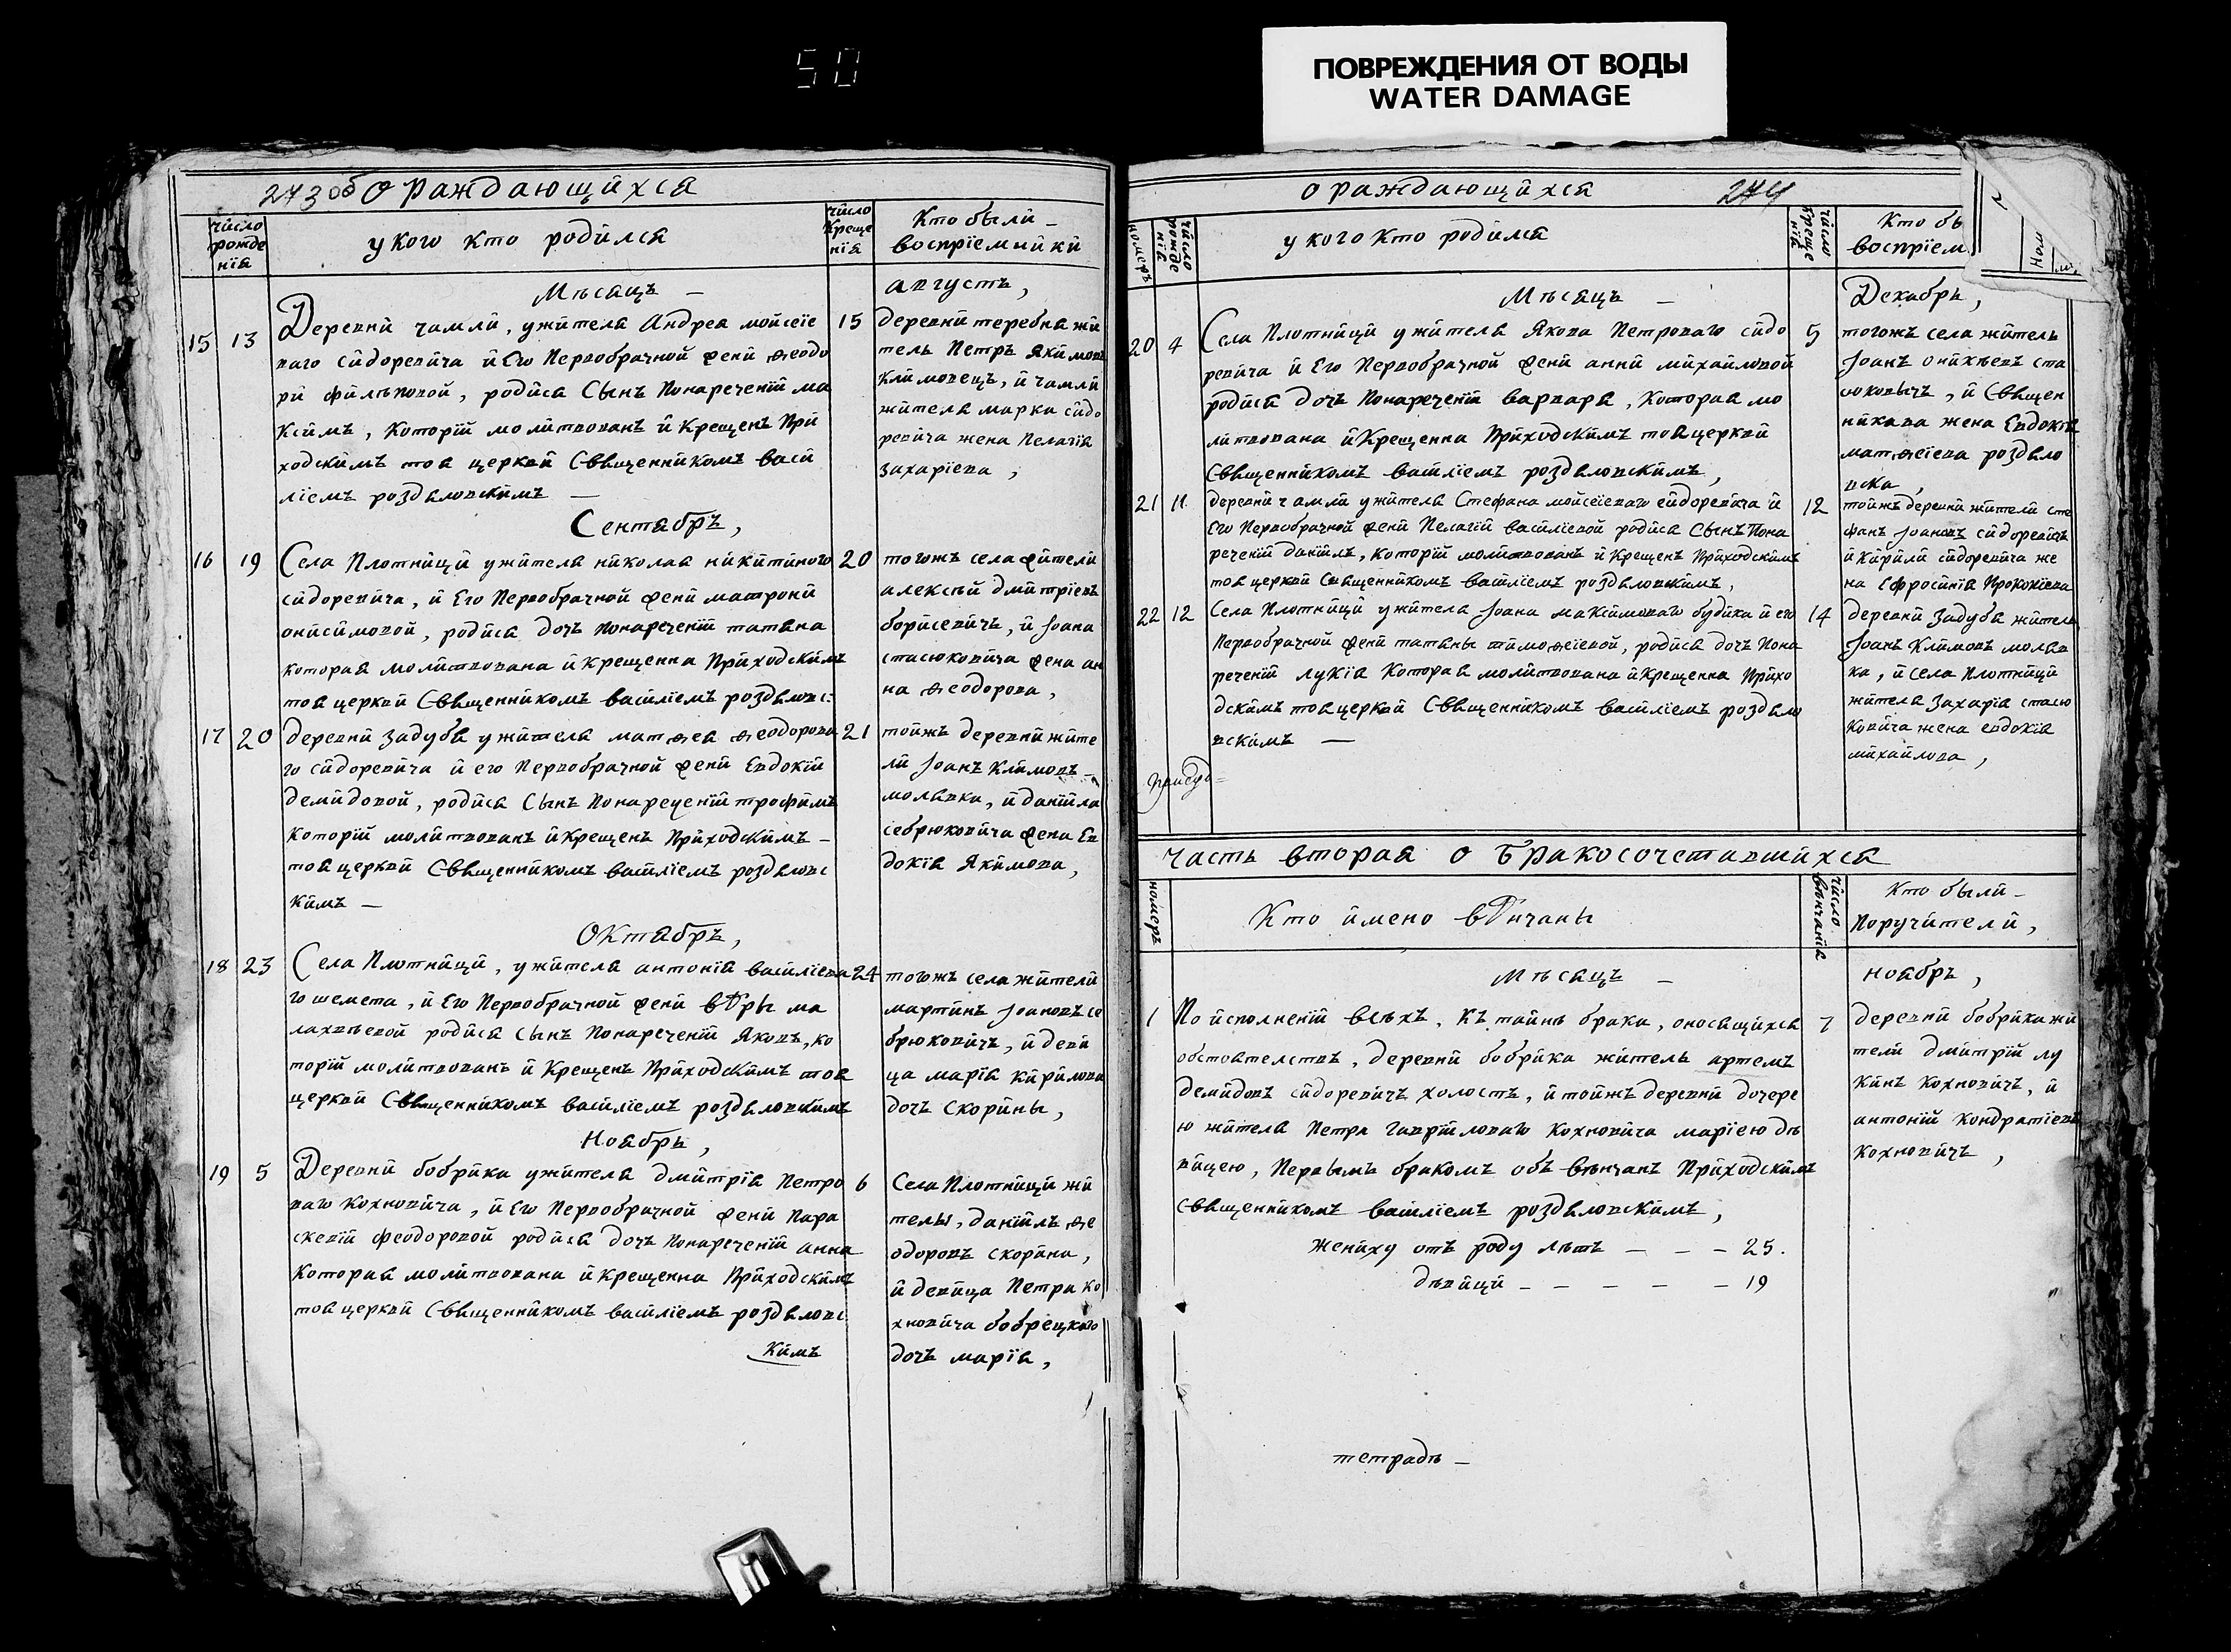 50
ПОВРЕЖДЕНИЯ ОТ ВОДЫ
WATER DAMAGE
273 об О раждающихся
число рожденїя
у кого кто родился
число крещенїя
Кто были воспрїемники
Мѣсяцъ —
августъ,
15 13
Деревни чамли, ужителя Андрея мойсеїе
ваго сидоревича и Его Первобрачной жени ѳеодо
ри филѣповой, родися Сынъ Понаречении ма
ксимъ, которїй молитвованъ и крещенъ При
ходскимъ тоя церкви Священникомъ васи
лїемъ роздяловскимъ —
15
деревни теребня жи
тель Петръ якимовъ
климовецъ, и чамли
жителя марка сидо
ревича жена Пелагїя
захарїева,
Сентябръ,
16 19
Села Плотници ужителя николая никитиного
сидоревича, и Его Первобрачной жени матрони
онисимовой, родися дочъ Понаречении татяна
которая молитвована и крещенна Приходскимъ
тоя церкви Священникомъ василїемъ роздяловс:
20
тогожъ села жители
алексѣй дмитрїевъ
борисевичъ, и Јоана
стасюковича жена ан
на ѳеодорова,
17 20
деревни задубя ужителя матѳея ѳеодорова
го сидоревича и его Первобрачной жени Евдокїи
демидовой, родися Сынъ Понаречении трофимъ
которїй молитвованъ и крещенъ Приходскимъ —
тоя церкви Священникомъ василїемъ роздяловс
кимъ —
21
тойжъ деревни жите
ли Јоанъ климовъ —
молявка, и данїила
себрюковича жена Ев
докїя Якимова,
Октябръ,
18 23
Села Плотници, ужителя антонїя василїева
го шемета, и Его Первобрачной жени вѣры ма
лахвѣевой родися сынъ Понаречении Яковъ, ко
торїй молитвованъ и крещенъ Приходскимъ тоя
церкви Священникомъ василїемъ роздяловскимъ
24
тогожъ села жители
мартинъ Јоановъ се
брюковичъ, и деви
ца марїя кирилова
дочъ скорины,
Ноябрь,
19 5
Деревни бобрика ужителя дмитрїя Петро
ваго кохновича, и Его Первобрачной жени Пара
скевїи феодоровой родися дочъ Понаречении анна
которая молитвована и крещенна Приходскимъ
тоя церкви Священникомъ василїемъ роздяловс
кимъ
6
Села Плотници жи
телы, данїилъ ѳе
одоровъ скорина,
и девица Петра ко
хновича бобрецкого
дочъ марїя,
о раждающихся
274
номеръ
число рожденїя
у кого кто родился
число крещенїя
Кто бы
воспрїем
Мѣсяцъ —
Декабрь,
20 4
Села Плотници ужителя Якова Петроваго сидо
ревича и Его Первобрачной жени анни михайловой
родися дочъ Понаречении варвара, которая мо
литвована и крещенна Приходскимъ тоя церкви
Священникомъ василїемъ роздяловскимъ,
5
тогожъ села житель
Јоанъ онихѣевъ ста
сюковычъ, и Священ
никова жена Евдокїя
матѳеїева роздяло
вска,
21 11
деревни чамли ужителя Стефана мойсеїеваго сидоревича и
Его Первобрачной жени Пелагїи василїевой родися Сынъ Пона
речении данїилъ, которїй молитвованъ и крещенъ Приходскимъ
тоя церкви Священникомъ василїемъ роздяловскимъ,
12
тойжъ деревни жители сте
фанъ Јоановъ сидоревичъ
и кирили сидоревича же
на Ефросинїя Прокопїева
22 12
Села Плотници ужителя Јоана максимоваго будика и его
Первобрачной жени татяны тимоѳеїевой, родися дочъ Пона
речении лукїя которая молитвована и крещенна Прихо
дскимъ тоя церкви Священникомъ василїемъ роздяло
вскимъ —
14
деревни задубя житель
Јоанъ климовъ моляв
ка, и села Плотници
жителя захарїя стасю
ковича жена евдокїя
михайлова,
часть вторая о бракосочетавшихся
номеръ
Кто имено вѣнчаны
число вѣнчанїя
Кто были —
Поручители,
Мѣсяцъ —
ноябръ,
1
По исполненїи всѣхъ, къ тайнѣ брака, оносящихся
обстоятелствъ, деревни бобрика житель артемъ
демидовъ сидоревичъ холостъ, и тойжъ деревни дочере
ю жителя Петра гаврїиловаго кохновича марїею дѣ
вицею, Первымъ бракомъ обѣвѣнчанъ Приходскимъ
Священникомъ василїемъ роздяловскимъ,
7
деревни бобрика жи
тели дмитрїй лу
кинъ кохновичъ, и
антонїй кондратїевъ
кохновичъ,
жениху отъ роду лѣтъ — — — 25.
дѣвици — — — — — 19
тетрадь —